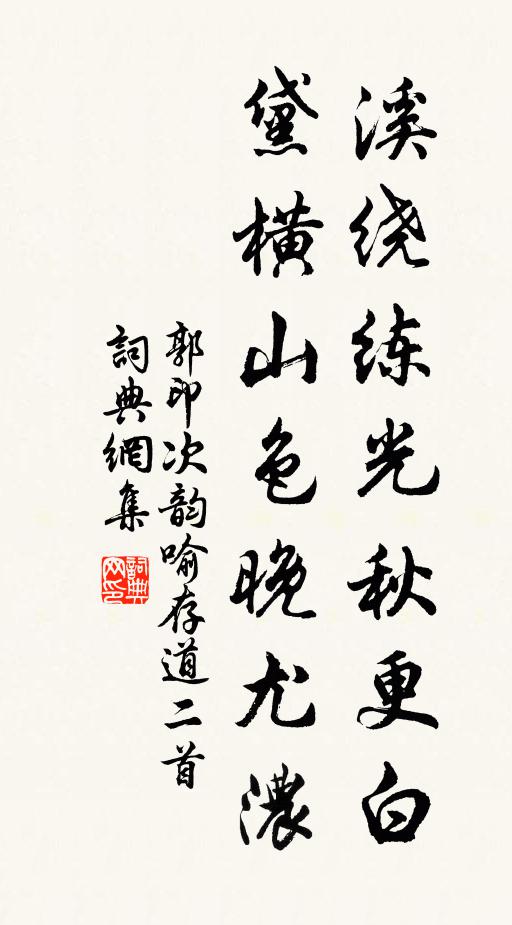 溪绕练光秋更白
黛橫山色晚尤濃
郭印次韵喻存道二首
詞典網集
詞典网印